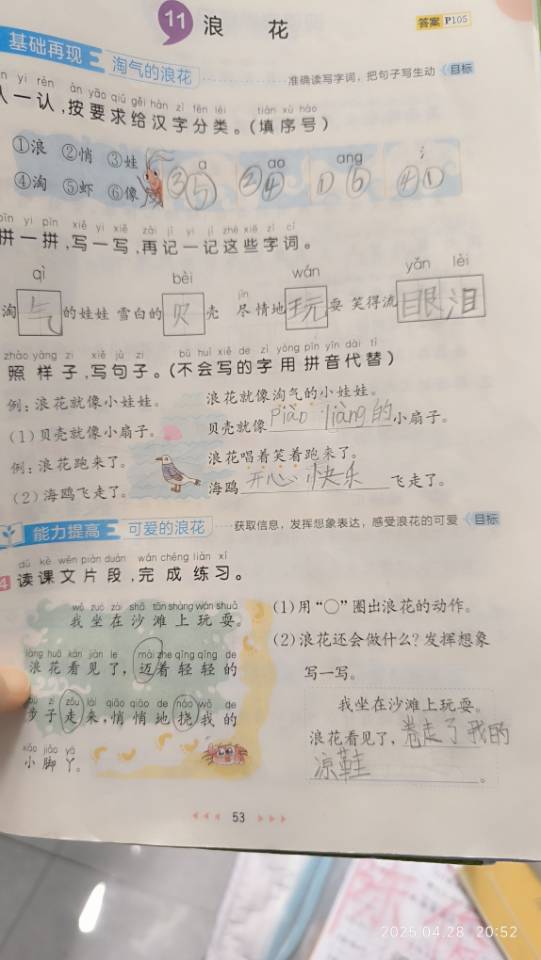 11 浪 花
答案 P105
基础再现 淘气的浪花 准确读写字词，把句子写生动 目标
yi rèn àn yāo qiú gěi hàn zì fēn lèi tián xù hào
认一认，按要求给汉字分类。(填序号)
①浪 ②悄 ③娃 a ao ang 氵
④淘 ⑤虾 ⑥像 ③⑤ ②④ ①⑥ ④①
pīn yi pīn xiě yi xiě zài jì yi jì zhè xiē zì cí
拼一拼，写一写，再记一记这些字词。
qì bèi wán yǎn lèi
淘气的娃娃 雪白的贝壳 尽情地玩耍 笑得流眼泪
jìn
zhào yàng zi xiě jù zi bú huì xiě de zì yòng pīn yīn dài tì
照样子，写句子。(不会写的字用拼音代替)
例：浪花就像小娃娃。 浪花就像淘气的小娃娃。
(1)贝壳就像小扇子。 贝壳就像piào liàng的小扇子。
例：浪花跑来了。 浪花唱着笑着跑来了。
(2)海鸥飞走了。 海鸥开心快乐飞走了。
能力提高 可爱的浪花 获取信息，发挥想象表达，感受浪花的可爱 目标
dú kè wén piàn duàn wán chéng liàn xí
4 读课文片段，完成练习。
wǒ zuò zài shā tān shàng wán shuǎ
我坐在沙滩上玩耍。
làng huā kàn jiàn le mài zhe qīng qīng de
浪花看见了，迈着轻轻的
bù zi zǒu lái qiāo qiāo de náo wǒ de
步子走来，悄悄地挠我的
xiǎo jiǎo yā
小脚丫。
(1)用“○”圈出浪花的动作。
(2)浪花还会做什么？发挥想象
写一写。
我坐在沙滩上玩耍。
浪花看见了，卷走了我的
凉鞋。
53
2025.04.28 20:52